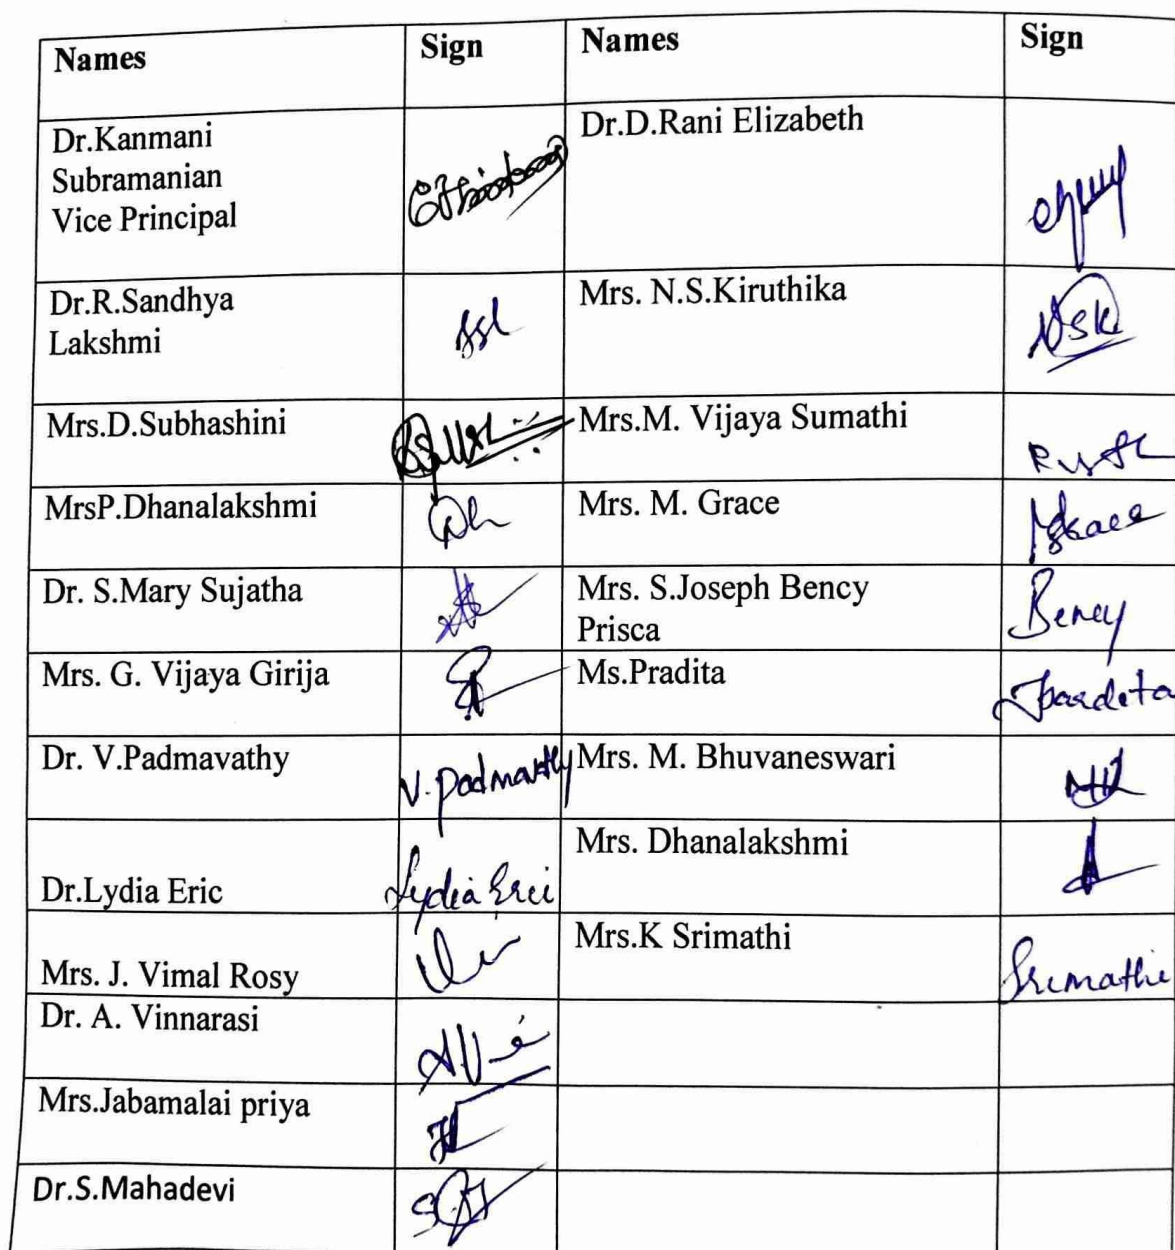 Names Sign Names Sign
Dr.Kanmani
Subramanian
Vice Principal
Dr.D.Rani Elizabeth
Dr.R.Sandhya
Lakshmi
Mrs. N.S.Kiruthika
NSK
Mrs.D.Subhashini
Mrs.M. Vijaya Sumathi
MrsP.Dhanalakshmi
Mrs. M. Grace
Dr. S.Mary Sujatha
Mrs. S.Joseph Bency
Prisca
Bency
Mrs. G. Vijaya Girija
Ms.Pradita
Dr. V.Padmavathy
V. Padmavathy
Mrs. M. Bhuvaneswari
Dr.Lydia Eric
Lydia Eric
Mrs. Dhanalakshmi
Mrs. J. Vimal Rosy
Mrs.K Srimathi
Srimathi
Dr. A. Vinnarasi
Mrs.Jabamalai priya
Dr.S.Mahadevi